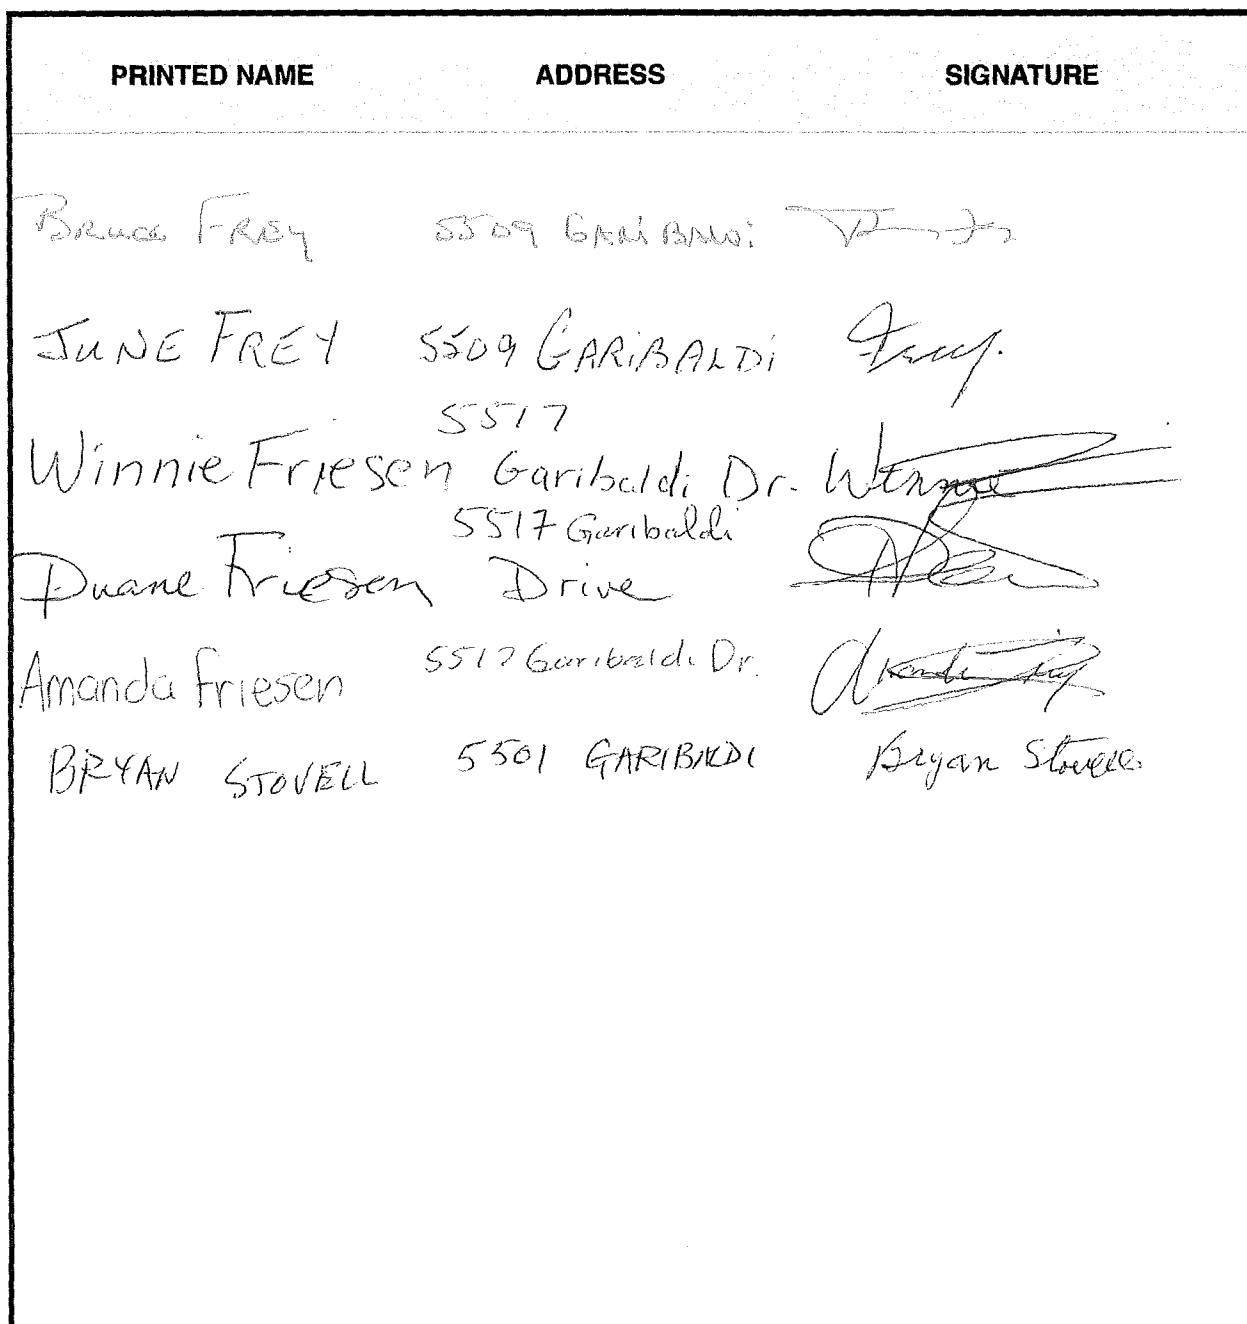 PRINTED NAME ADDRESS SIGNATURE
Bruce Frey 5509 Garibaldi
JUNE FREY 5509 GARIBALDI Frey.
5517
Winnie Friesen Garibaldi Dr. Winnie
5517 Garibaldi
Duane Friesen Drive
Amanda Friesen 5517 Garibaldi Dr.
BRYAN STOVELL 5501 GARIBALDI Bryan Stovell